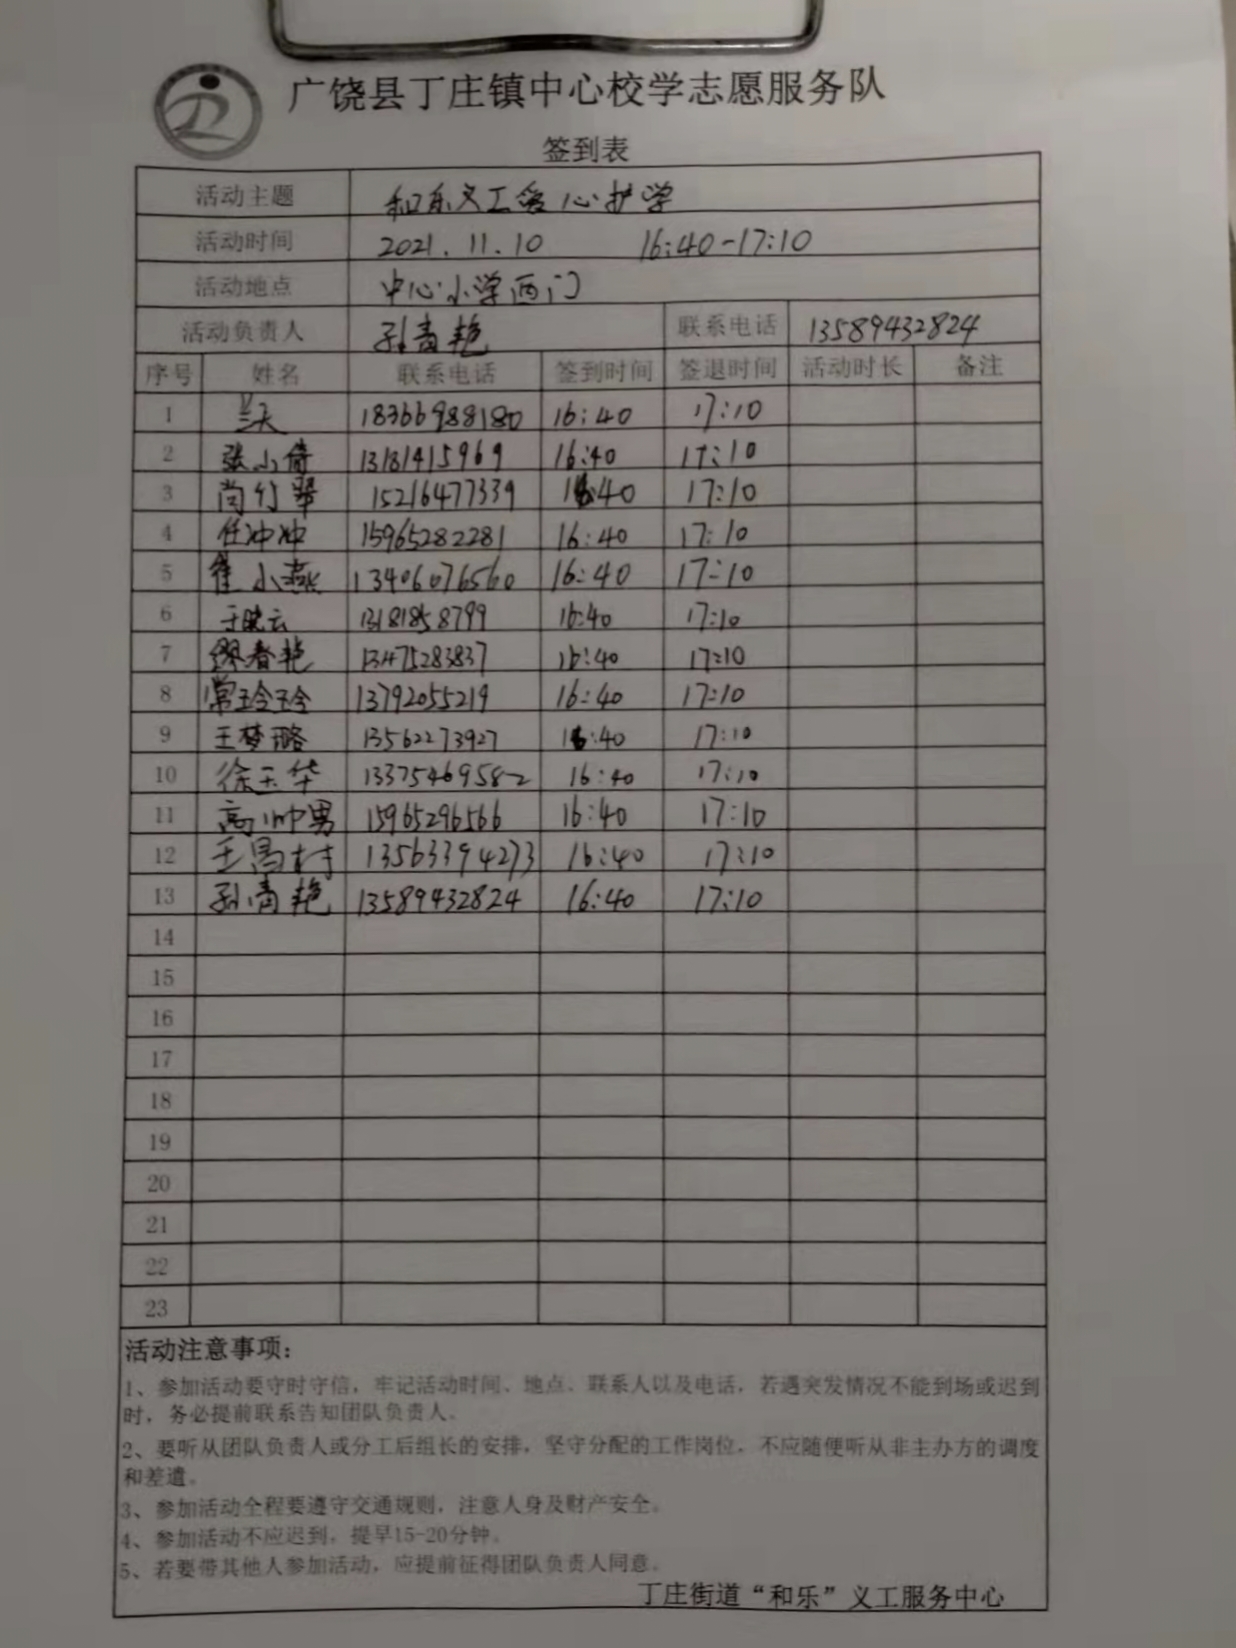 广饶县丁庄镇中心校学志愿服务队
签到表
活动主题 和乐义工爱心护学
活动时间 2021.11.10 16:40-17:10
活动地点 中心小学西门
活动负责人 孙青艳 联系电话 13589432824
序号 姓名 联系电话 签到时间 签退时间 活动时长 备注
1 18366988180 16:40 17:10
2 张小倩 13181415969 16:40 17:10
3 尚竹翠 15216477339 16:40 17:10
4 任冲冲 15965282281 16:40 17:10
5 崔小燕 13406076560 16:40 17:10
6 于晓云 13181858799 16:40 17:10
7 缪春艳 13475283837 16:40 17:10
8 常玲玲 13792055219 16:40 17:10
9 王梦璐 13562273927 16:40 17:10
10 徐玉华 13375469582 16:40 17:10
11 高帅男 15965296566 16:40 17:10
12 王 村 13563394273 16:40 17:10
13 孙青艳 13589432824 16:40 17:10
14
15
16
17
18
19
20
21
22
23
活动注意事项：
1、参加活动要守时守信，牢记活动时间、地点、联系人以及电话，若遇突发情况不能到场或迟到
时，务必提前联系告知团队负责人。
2、要听从团队负责人或分工后组长的安排，坚守分配的工作岗位，不应随便听从非主办方的调度
和差遣。
3、参加活动全程要遵守交通规则，注意人身及财产安全。
4、参加活动不应迟到，提早15-20分钟。
5、若要带其他人参加活动，应提前征得团队负责人同意。
丁庄街道“和乐”义工服务中心